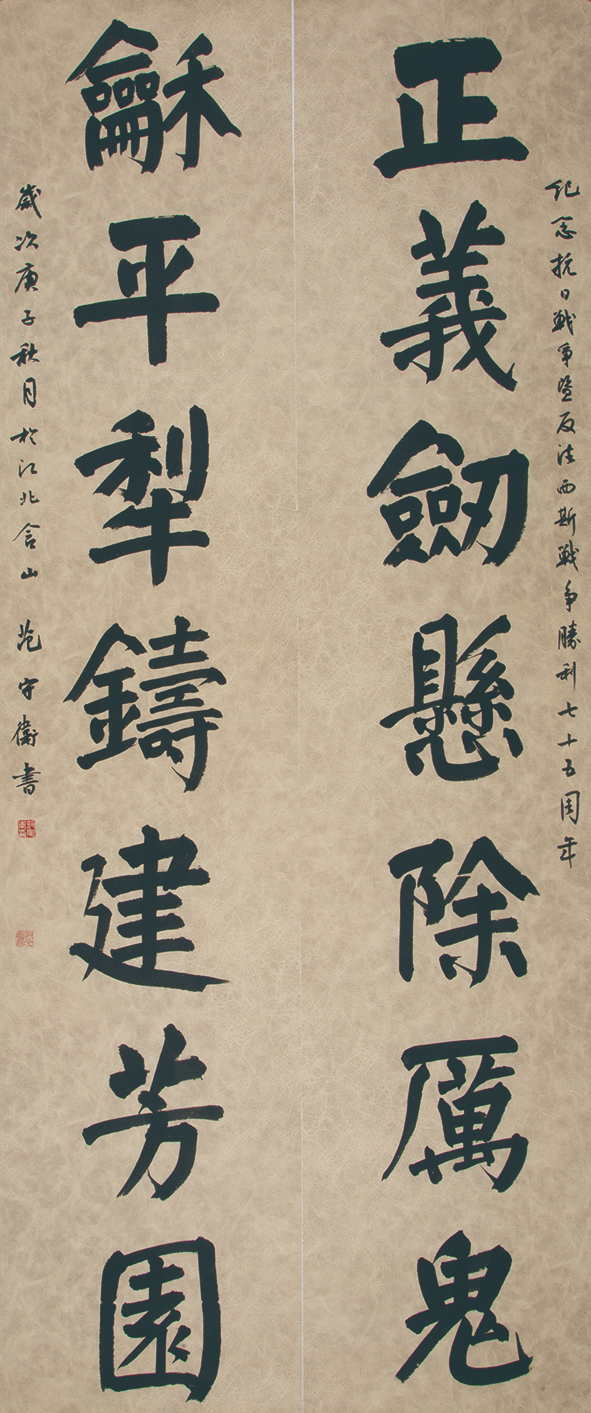 纪念抗日戰争暨反法西斯戰争勝利七十五周年
正義劒懸除厲鬼
龢平犁鑄建芳園
歲次庚子秋月於江北含山 范守衛書